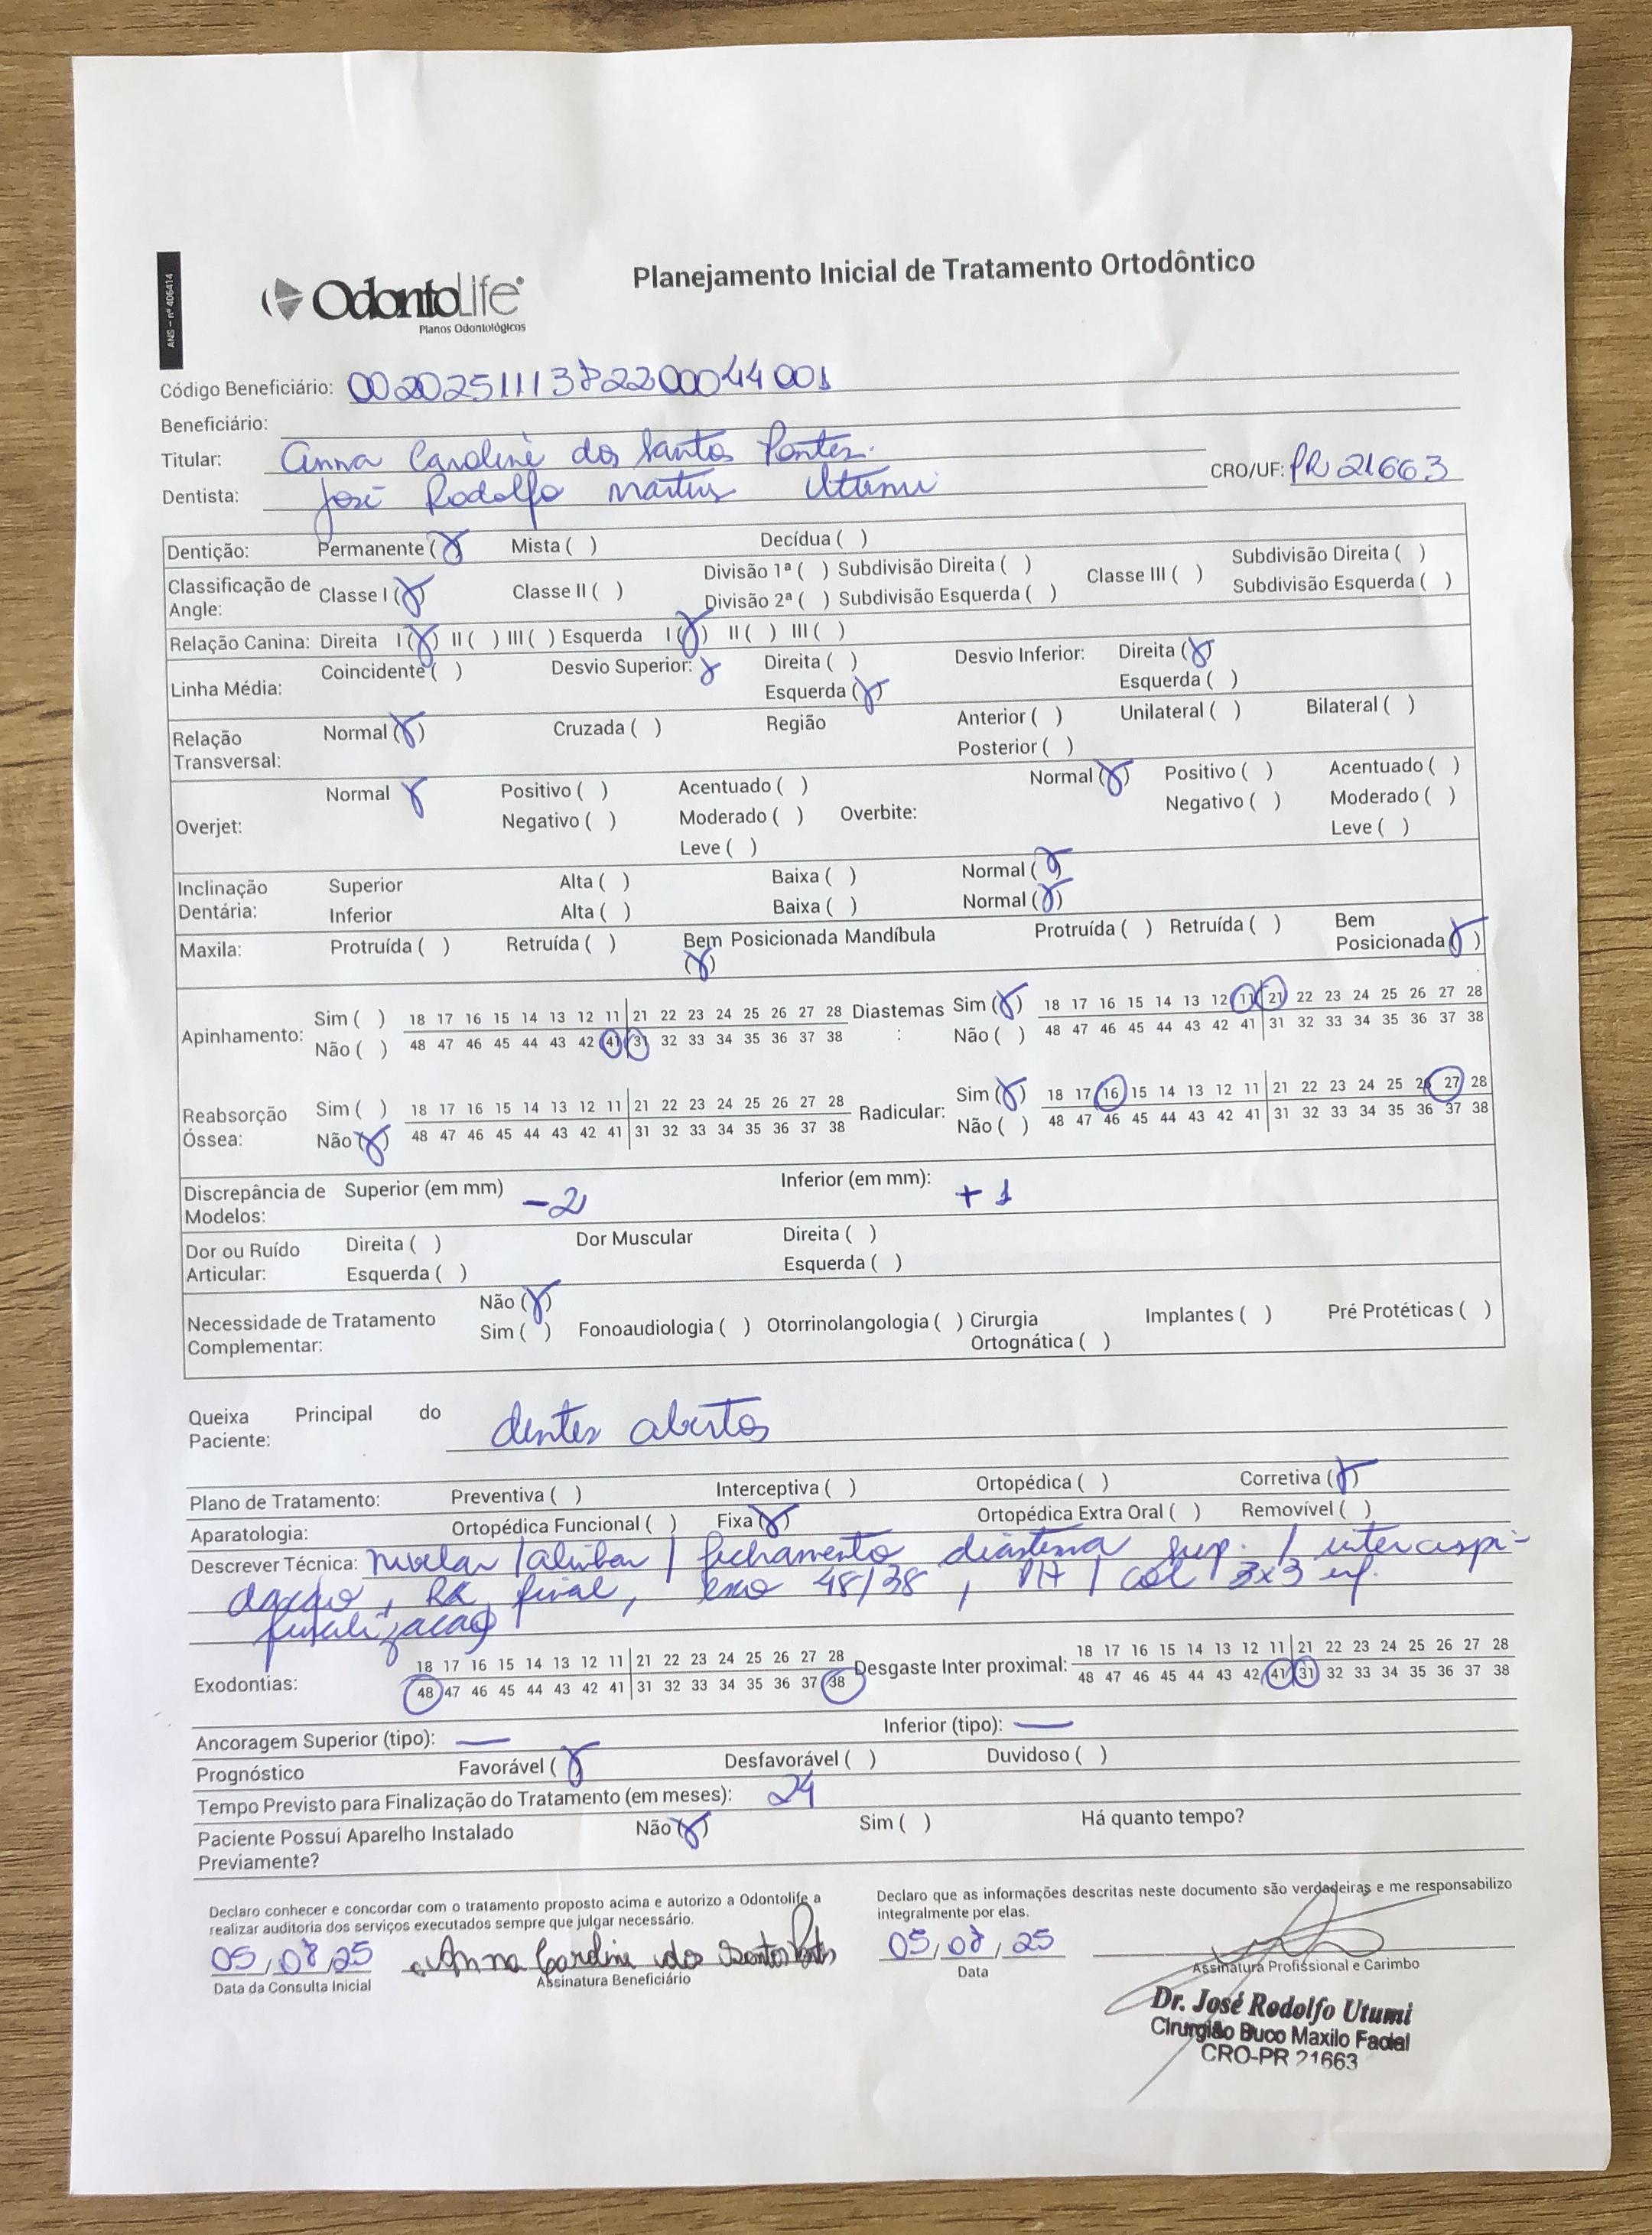 ANS – nº 406414
OdontoLife®
Planos Odontológicos
Planejamento Inicial de Tratamento Ortodôntico
Código Beneficiário: 002025111382200044001
Beneficiário:
Titular: Anna Caroline dos Santos Pontes.
Dentista: José Rodolfo Martins Utumi CRO/UF: PR 21663
Dentição: Permanente (X) Mista ( ) Decídua ( )
Classificação de Angle: Classe I (X) Classe II ( ) Divisão 1ª ( ) Subdivisão Direita ( ) Classe III ( ) Subdivisão Direita ( )
Divisão 2ª ( ) Subdivisão Esquerda ( ) Subdivisão Esquerda ( )
Relação Canina: Direita I (X) II ( ) III ( ) Esquerda I (X) II ( ) III ( )
Linha Média: Coincidente ( ) Desvio Superior: X Direita ( ) Desvio Inferior: Direita (X)
Esquerda (X) Esquerda ( )
Relação Transversal: Normal (X) Cruzada ( ) Região Anterior ( ) Unilateral ( ) Bilateral ( )
Posterior ( )
Overjet: Normal X Positivo ( ) Acentuado ( ) Overbite: Normal (X) Positivo ( ) Acentuado ( )
Negativo ( ) Moderado ( ) Negativo ( ) Moderado ( )
Leve ( ) Leve ( )
Inclinação Dentária: Superior Alta ( ) Baixa ( ) Normal (X)
Inferior Alta ( ) Baixa ( ) Normal (X)
Maxila: Protruída ( ) Retruída ( ) Bem Posicionada (X) Mandíbula Protruída ( ) Retruída ( ) Bem Posicionada (X)
Apinhamento: Sim ( ) 18 17 16 15 14 13 12 11 21 22 23 24 25 26 27 28 Diastemas: Sim (X) 18 17 16 15 14 13 12 11 21 22 23 24 25 26 27 28
Não ( ) 48 47 46 45 44 43 42 41 31 32 33 34 35 36 37 38 Não ( ) 48 47 46 45 44 43 42 41 31 32 33 34 35 36 37 38
Reabsorção Óssea: Sim ( ) 18 17 16 15 14 13 12 11 21 22 23 24 25 26 27 28 Radicular: Sim (X) 18 17 16 15 14 13 12 11 21 22 23 24 25 26 27 28
Não (X) 48 47 46 45 44 43 42 41 31 32 33 34 35 36 37 38 Não ( ) 48 47 46 45 44 43 42 41 31 32 33 34 35 36 37 38
Discrepância de Modelos: Superior (em mm) -2 Inferior (em mm): +1
Dor ou Ruído Articular: Direita ( ) Dor Muscular Direita ( )
Esquerda ( ) Esquerda ( )
Necessidade de Tratamento Complementar: Não (X)
Sim ( ) Fonoaudiologia ( ) Otorrinolangologia ( ) Cirurgia Ortognática ( ) Implantes ( ) Pré Protéticas ( )
Queixa Principal do Paciente: dentes abertos
Plano de Tratamento: Preventiva ( ) Interceptiva ( ) Ortopédica ( ) Corretiva (X)
Aparatologia: Ortopédica Funcional ( ) Fixa (X) Ortopédica Extra Oral ( ) Removível ( )
Descrever Técnica: nivelar / alinhar / fechamento diastema sup. / intercuspi-
dação, RX final, exo 48/38, / col 3x3 inf.
finalização
Exodontias: 18 17 16 15 14 13 12 11 21 22 23 24 25 26 27 28 Desgaste Inter proximal: 18 17 16 15 14 13 12 11 21 22 23 24 25 26 27 28
48 47 46 45 44 43 42 41 31 32 33 34 35 36 37 38 48 47 46 45 44 43 42 41 31 32 33 34 35 36 37 38
Ancoragem Superior (tipo): — Inferior (tipo): —
Prognóstico Favorável (X) Desfavorável ( ) Duvidoso ( )
Tempo Previsto para Finalização do Tratamento (em meses): 24
Paciente Possui Aparelho Instalado Previamente? Não (X) Sim ( ) Há quanto tempo?
Declaro conhecer e concordar com o tratamento proposto acima e autorizo a Odontolife a
realizar auditoria dos serviços executados sempre que julgar necessário.
Declaro que as informações descritas neste documento são verdadeiras e me responsabilizo
integralmente por elas.
05/08/25 Anna Caroline dos Santos Pontes 05/08/25
Data da Consulta Inicial Assinatura Beneficiário Data Assinatura Profissional e Carimbo
Dr. José Rodolfo Utumi
Cirurgião Buco Maxilo Facial
CRO-PR 21663